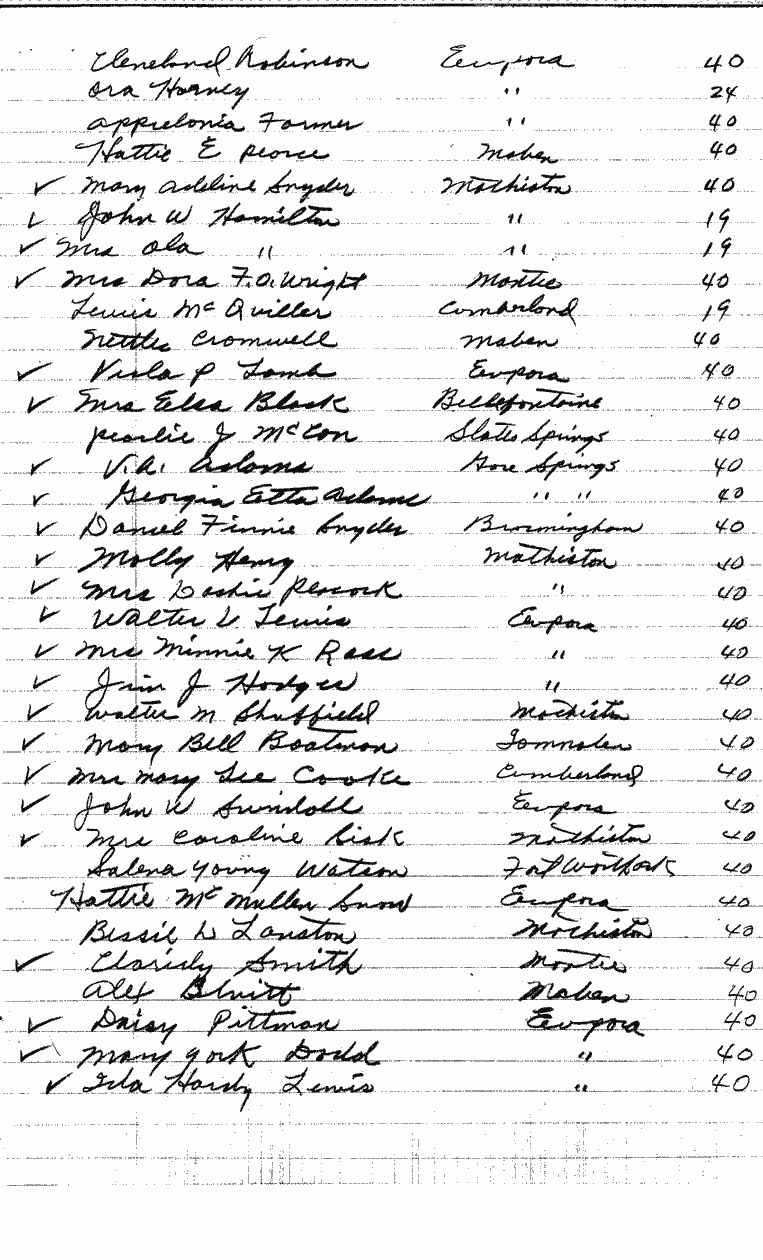 Cleveland Robinson Eupora 40
Ora Harvey " 24
Appielonia Farmer " 40
Hattie E Pearce Maben 40
✓ Mary Adeline Snyder Mathiston 40
✓ John W Hamilton " 19
✓ Mrs Ola " " 19
✓ Mrs Dora F.O. Wright Mantee 40
Lewis McQuiller Cumberland 19
Nettie Cromwell Maben 40
✓ Viola P Lamb Eupora 40
✓ Mrs Elsa Black Bellefontaine 40
Pearlie J McCon Slates Springs 40
✓ V.A. Adams Gore Springs 40
✓ Georgia Etta Adams " " 40
✓ Daniel Finnie Snyder Birmingham 40
✓ Molly Henry Mathiston 40
✓ Mrs Dashie Peacock " 40
✓ Walter L Lewis Eupora 40
✓ Mrs Minnie K Ross " 40
✓ Jim J Hodges " 40
✓ Walter M Sheffield Mathiston 40
✓ Mary Bell Boatman Tomnolen 40
✓ Mrs Mary Lee Cooke Cumberland 40
✓ John W Swindoll Eupora 40
✓ Mrs Caroline Fisk Mathiston 40
Salena Young Watson Fort Worth 40
Hattie McMullen Snow Eupora 40
Bessie L Lanston Mathiston 40
✓ Claridy Smith Mantee 40
Alex Bluitt Maben 40
✓ Daisy Pittman Eupora 40
✓ Mary York Dodd " 40
✓ Ida Hardy Lewis " 40